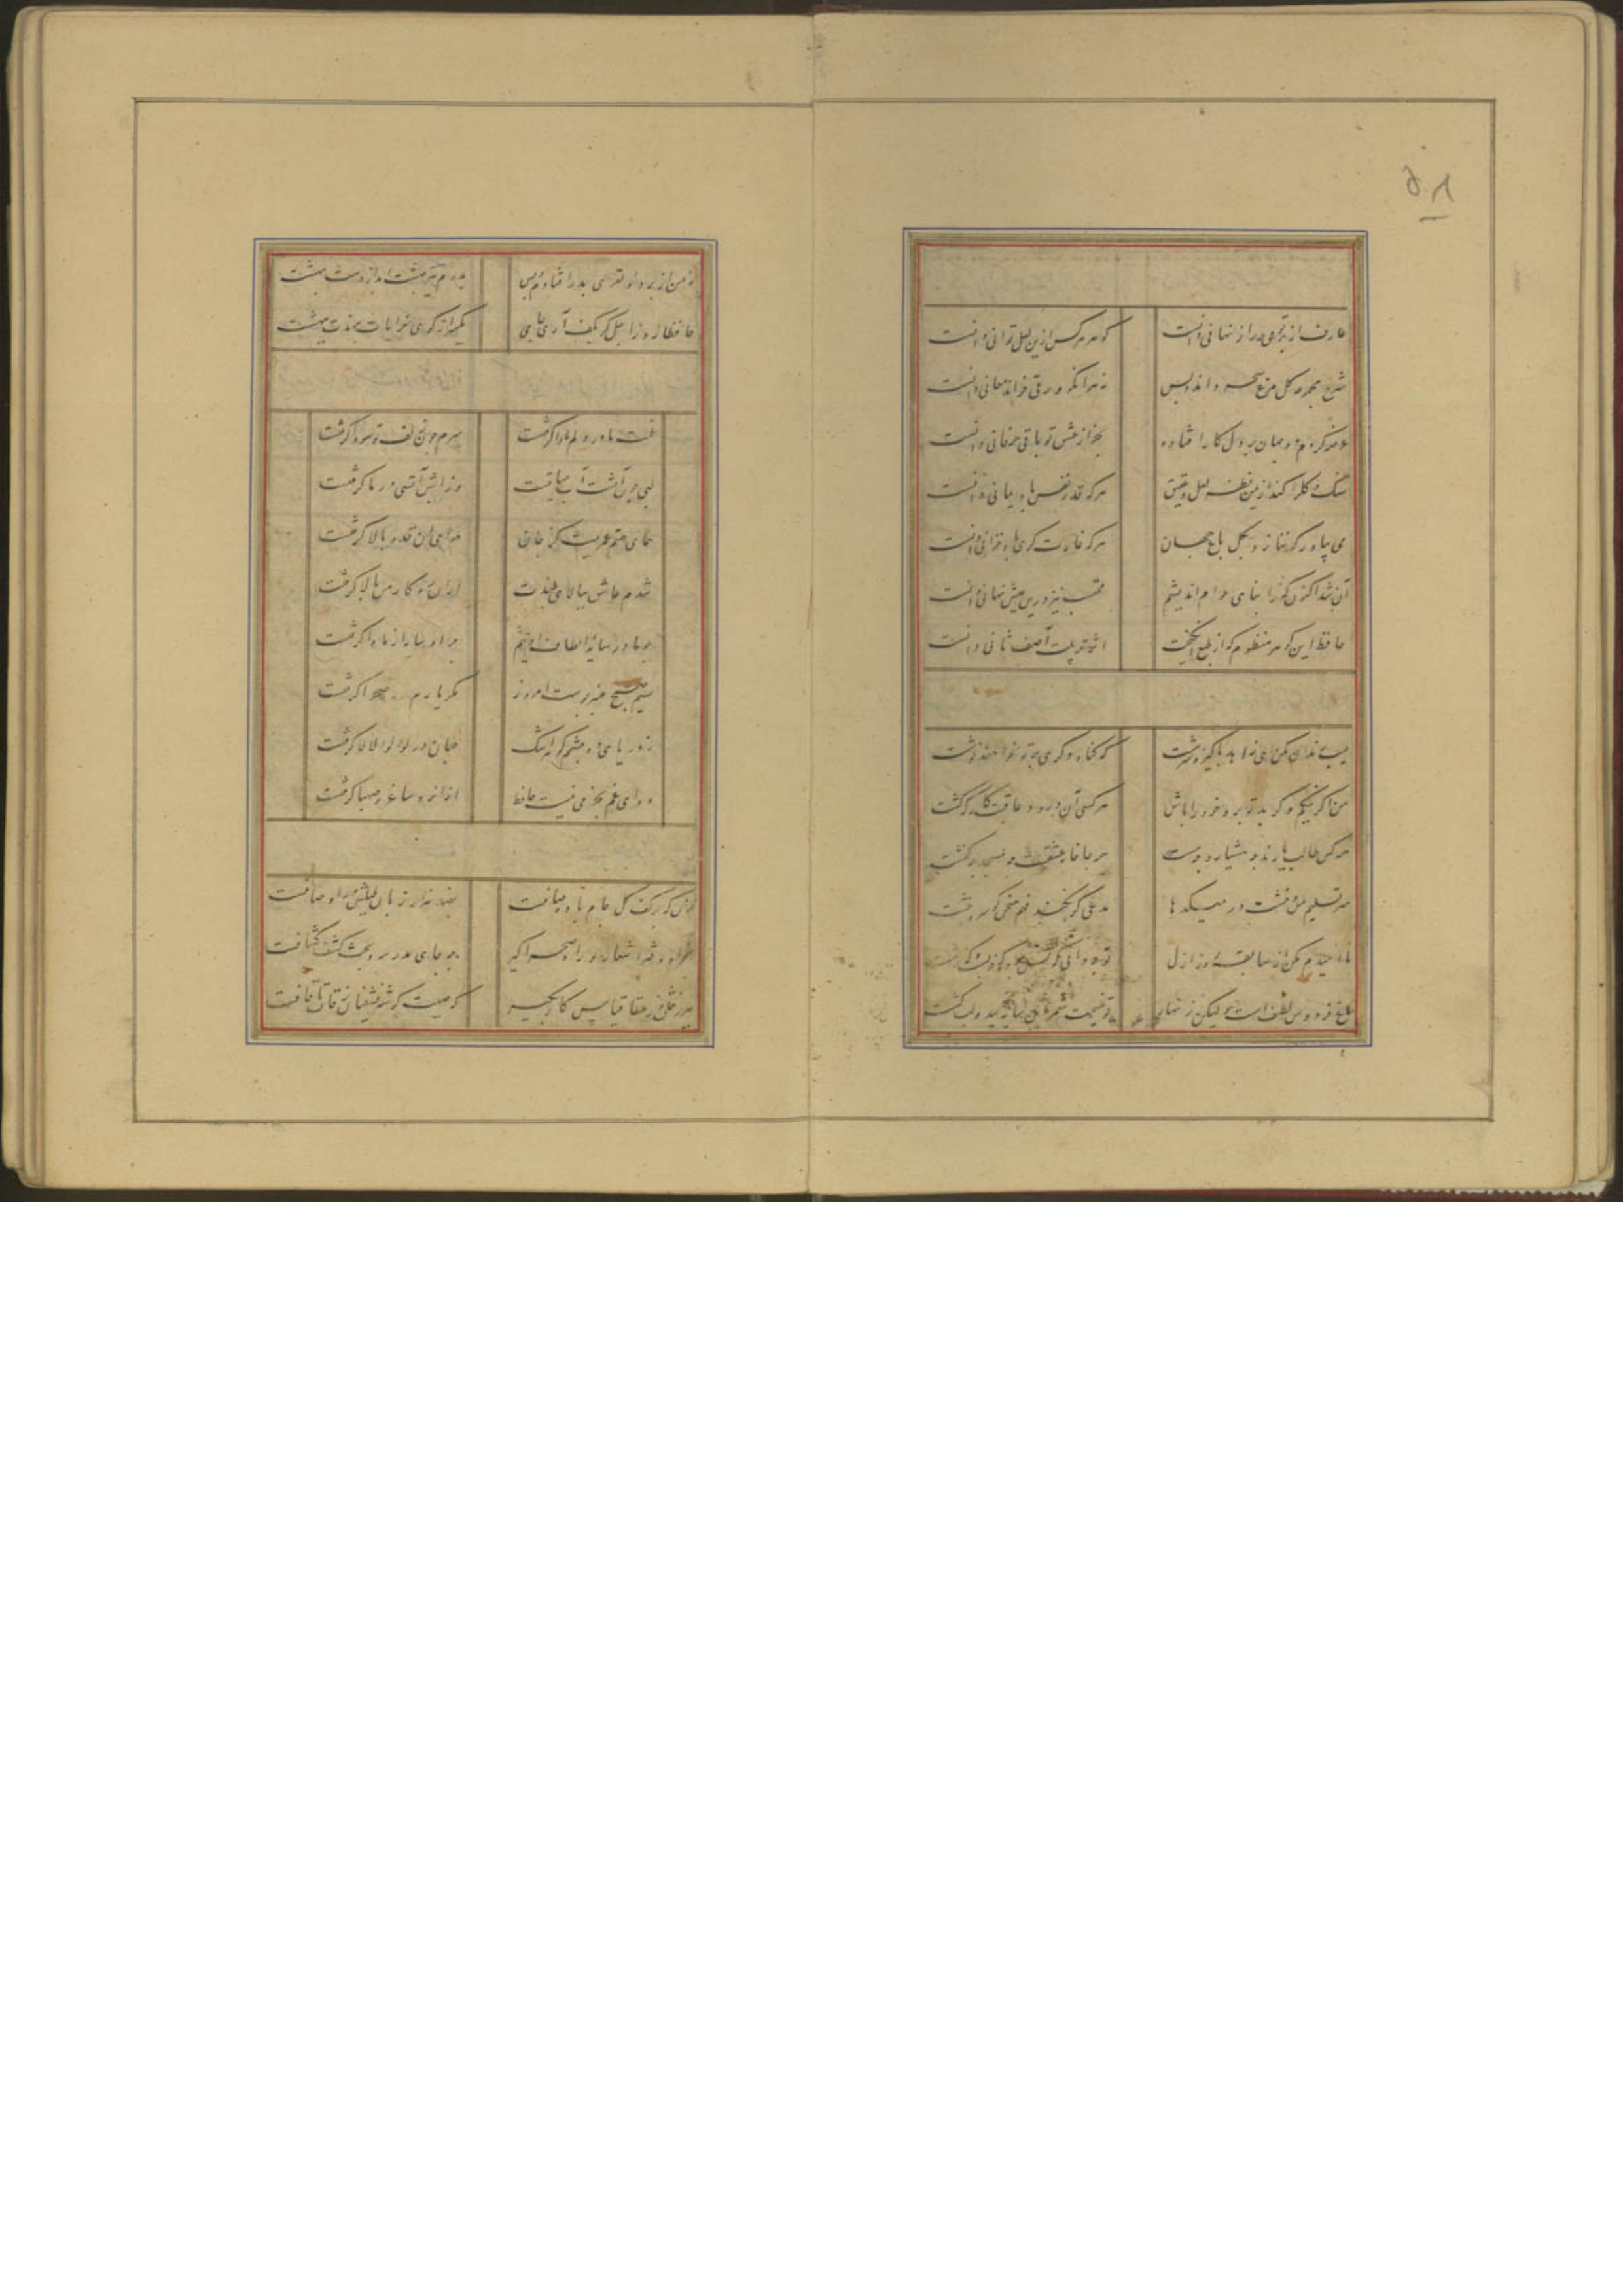 ۵۸
عارف از پرتو می راز نهانی دانست
گوهر هر کس ازین لعل توانی دانست
شرح مجموعه گل مرغ سحر داند و بس
نه هر آنکو ورقی خواند معانی دانست
عرضه کردم دو جهان بر دل کار افتاده
بجز از عشق تو باقی همه فانی دانست
سنگ و گل را کند از یمن نظر لعل و عقیق
هر که قدر نفس باد یمانی دانست
می بیاور که ننازد بگل باغ جهان
هر که غارتگری باد خزانی دانست
آن شد اکنون که ز ابنای عوام اندیشم
محتسب نیز درین عیش نهانی دانست
حافظ این گوهر منظوم که از طبع انگیخت
اثر تربیت آصف ثانی دانست
عیب رندان مکن ای زاهد پاکیزه سرشت
که گناه دگری بر تو نخواهند نوشت
من اگر نیکم و گر بد تو برو خود را باش
هر کسی آن درود عاقبت کار که کشت
هر کس طالب یارند چه هشیار و چه مست
هر جا خانه عشقست چه مسجد چه کنشت
سر تسلیم من و خشت در میکدها
مدعی گر نکند فهم سخن گو سر و خشت
نا امیدم مکن از سابقه روز ازل
تو چه دانی که پس پرده که خوبست و که زشت
باغ فردوس لطیف است لیکن زنهار
تو غنیمت شمر این سایه بید و لب کشت
نه من از پرده تقوی بدر افتادم و بس
پدرم نیز بهشت ابد از دست بهشت
حافظا روز اجل گر بکف آری جامی
یکسر از کوی خرابات برندت ببهشت
غمت تا در دلم ماوا گرفت
سرم چون زلف تو سودا گرفت
لب چون آتشت آب حیاتست
وز آن آتش آتشی در ما گرفت
همای همتم عمریست کز جان
هوای آن قد و بالا گرفت
شدم عاشق ببالای بلندت
که کار من بالا گرفت
چو ما در سایه الطاف اوئیم
چرا او سایه از ما واگرفت
نسیم صبح عنبر بوست امروز
مگر یارم ره صحرا گرفت
ز دریای دو چشمم گوهر اشک
جهان در لولو لالا گرفت
دوای غم بجز می نیست حافظ
از آنرو ساغر صهبا گرفت
کنون که بر کف گل جام باده صافست
بصد هزار زبان بلبلش در اوصافست
بخواه دفتر اشعار و راه صحرا گیر
چه جای مدرسه و بحث کشف کشافست
ببر ز خلق و ز عنقا قیاس کار بگیر
که صیت گوشه نشینان ز قاف تا قافست